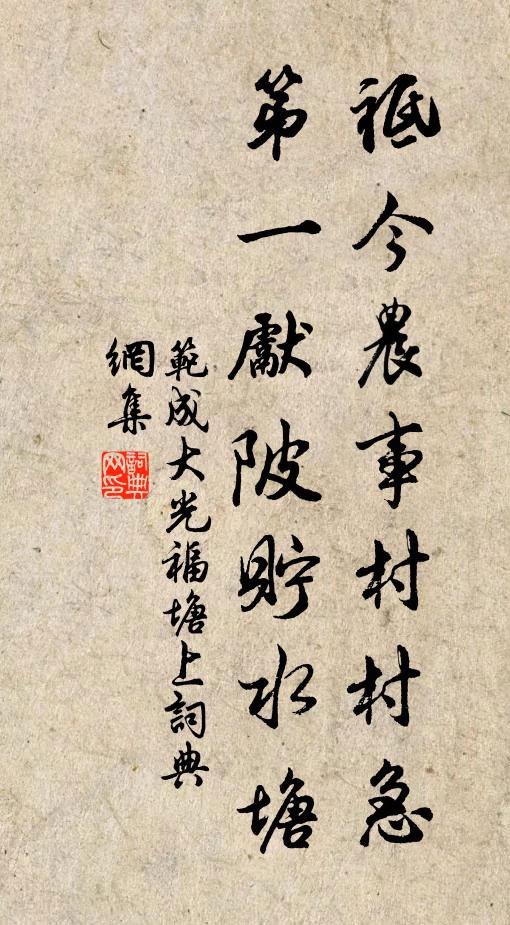 祗今農事村村急
第一獻陂貯水塘
範成大光福塘上詞典
網集
詞典
网印